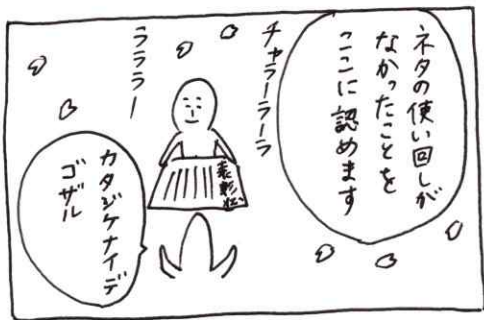 ネタの使い回しが
なかったことを
ここに認めます
チャラーラーラ
ララララー
表彰状
カタジケナイデ
ゴザル